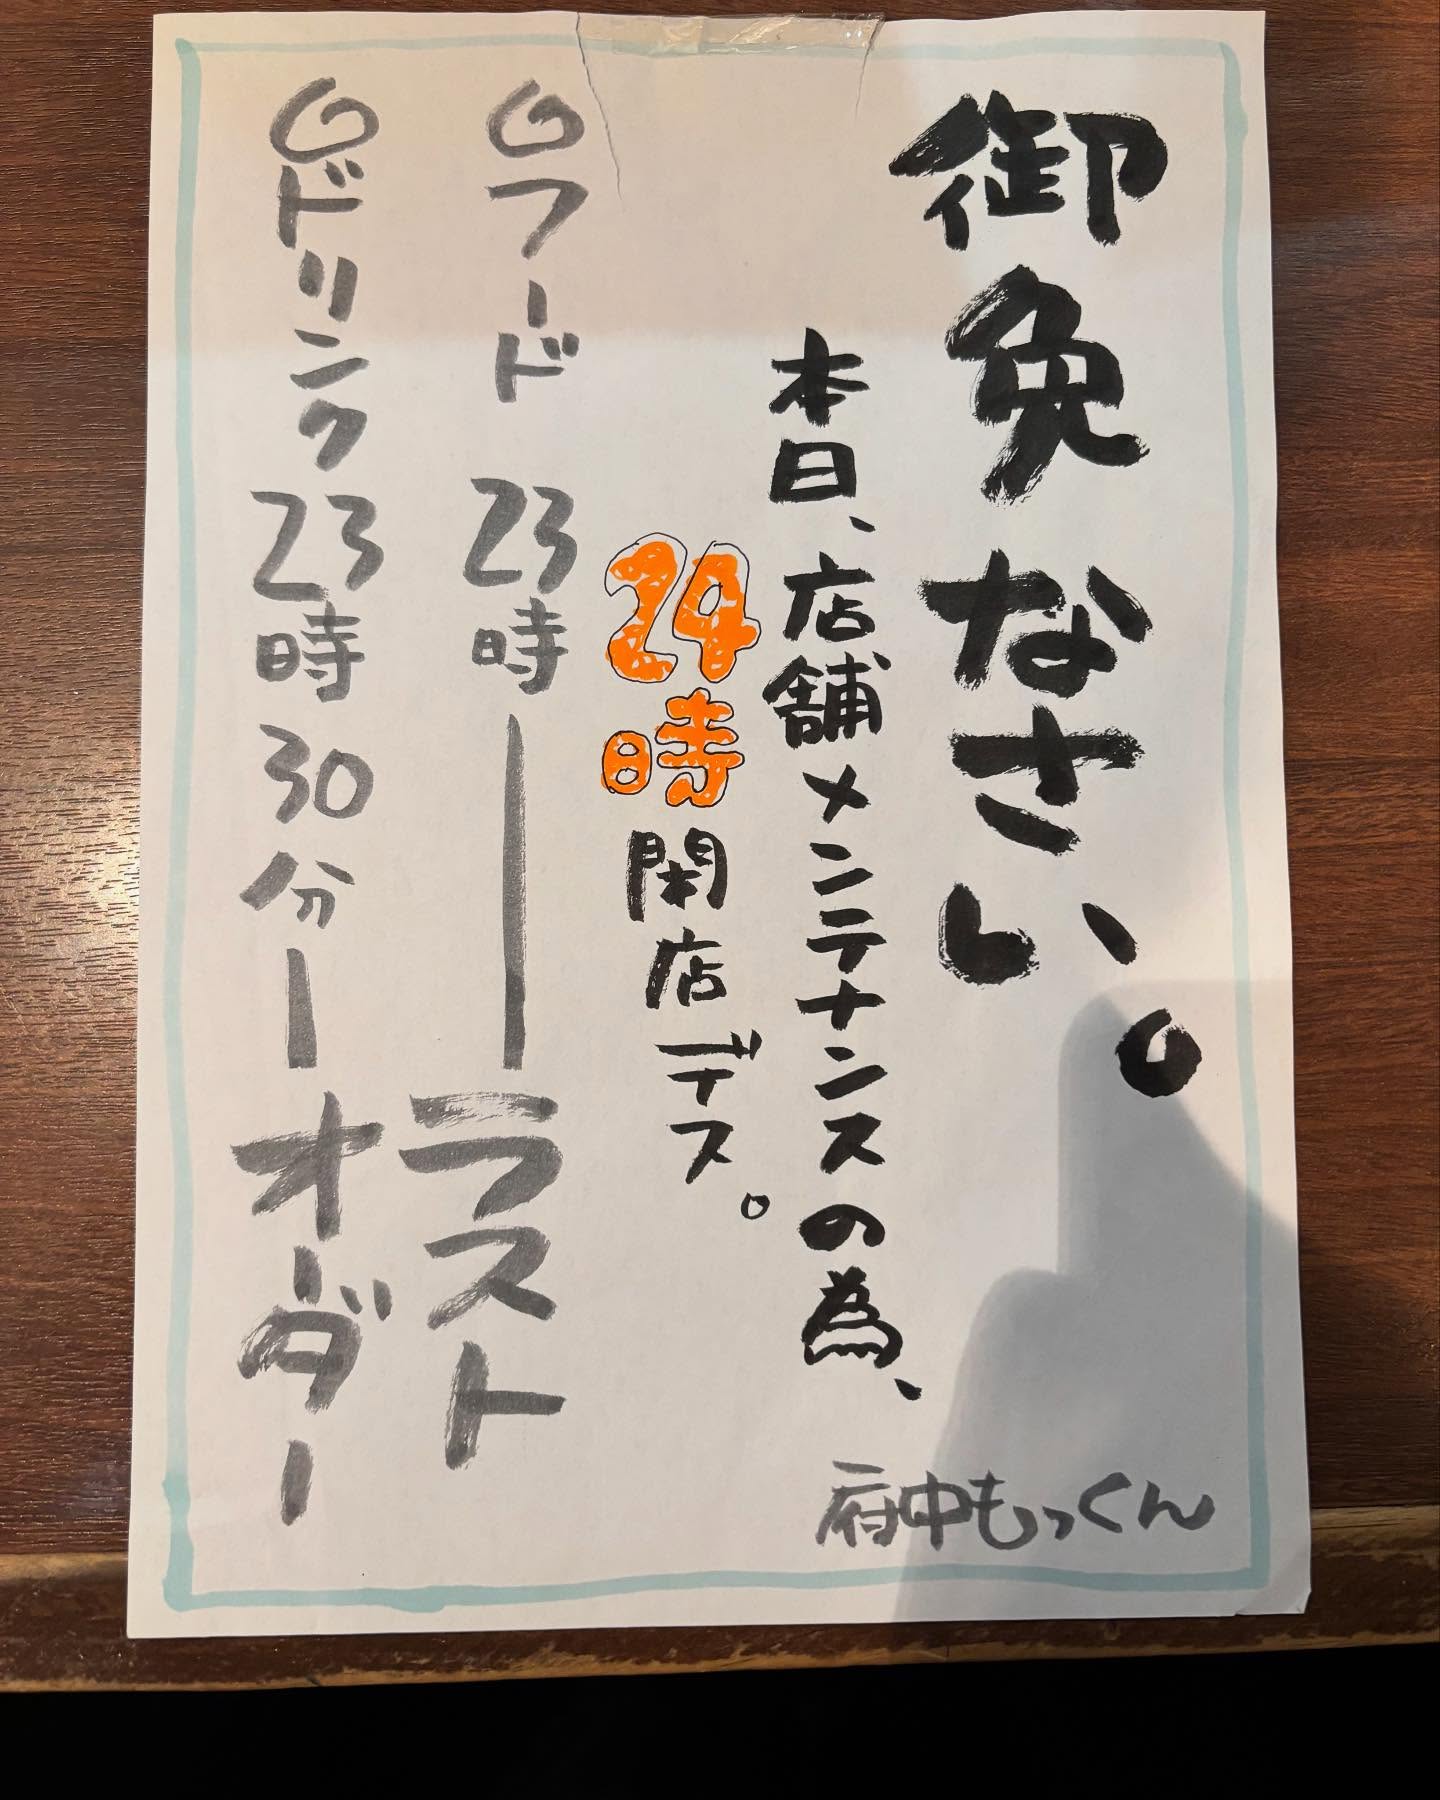 御免なさい。
本日、店舗メンテナンスの為、
24時閉店デス。
◎フード 23時ーラスト
◎ドリンク23時30分ーオーダー
府中もっくん